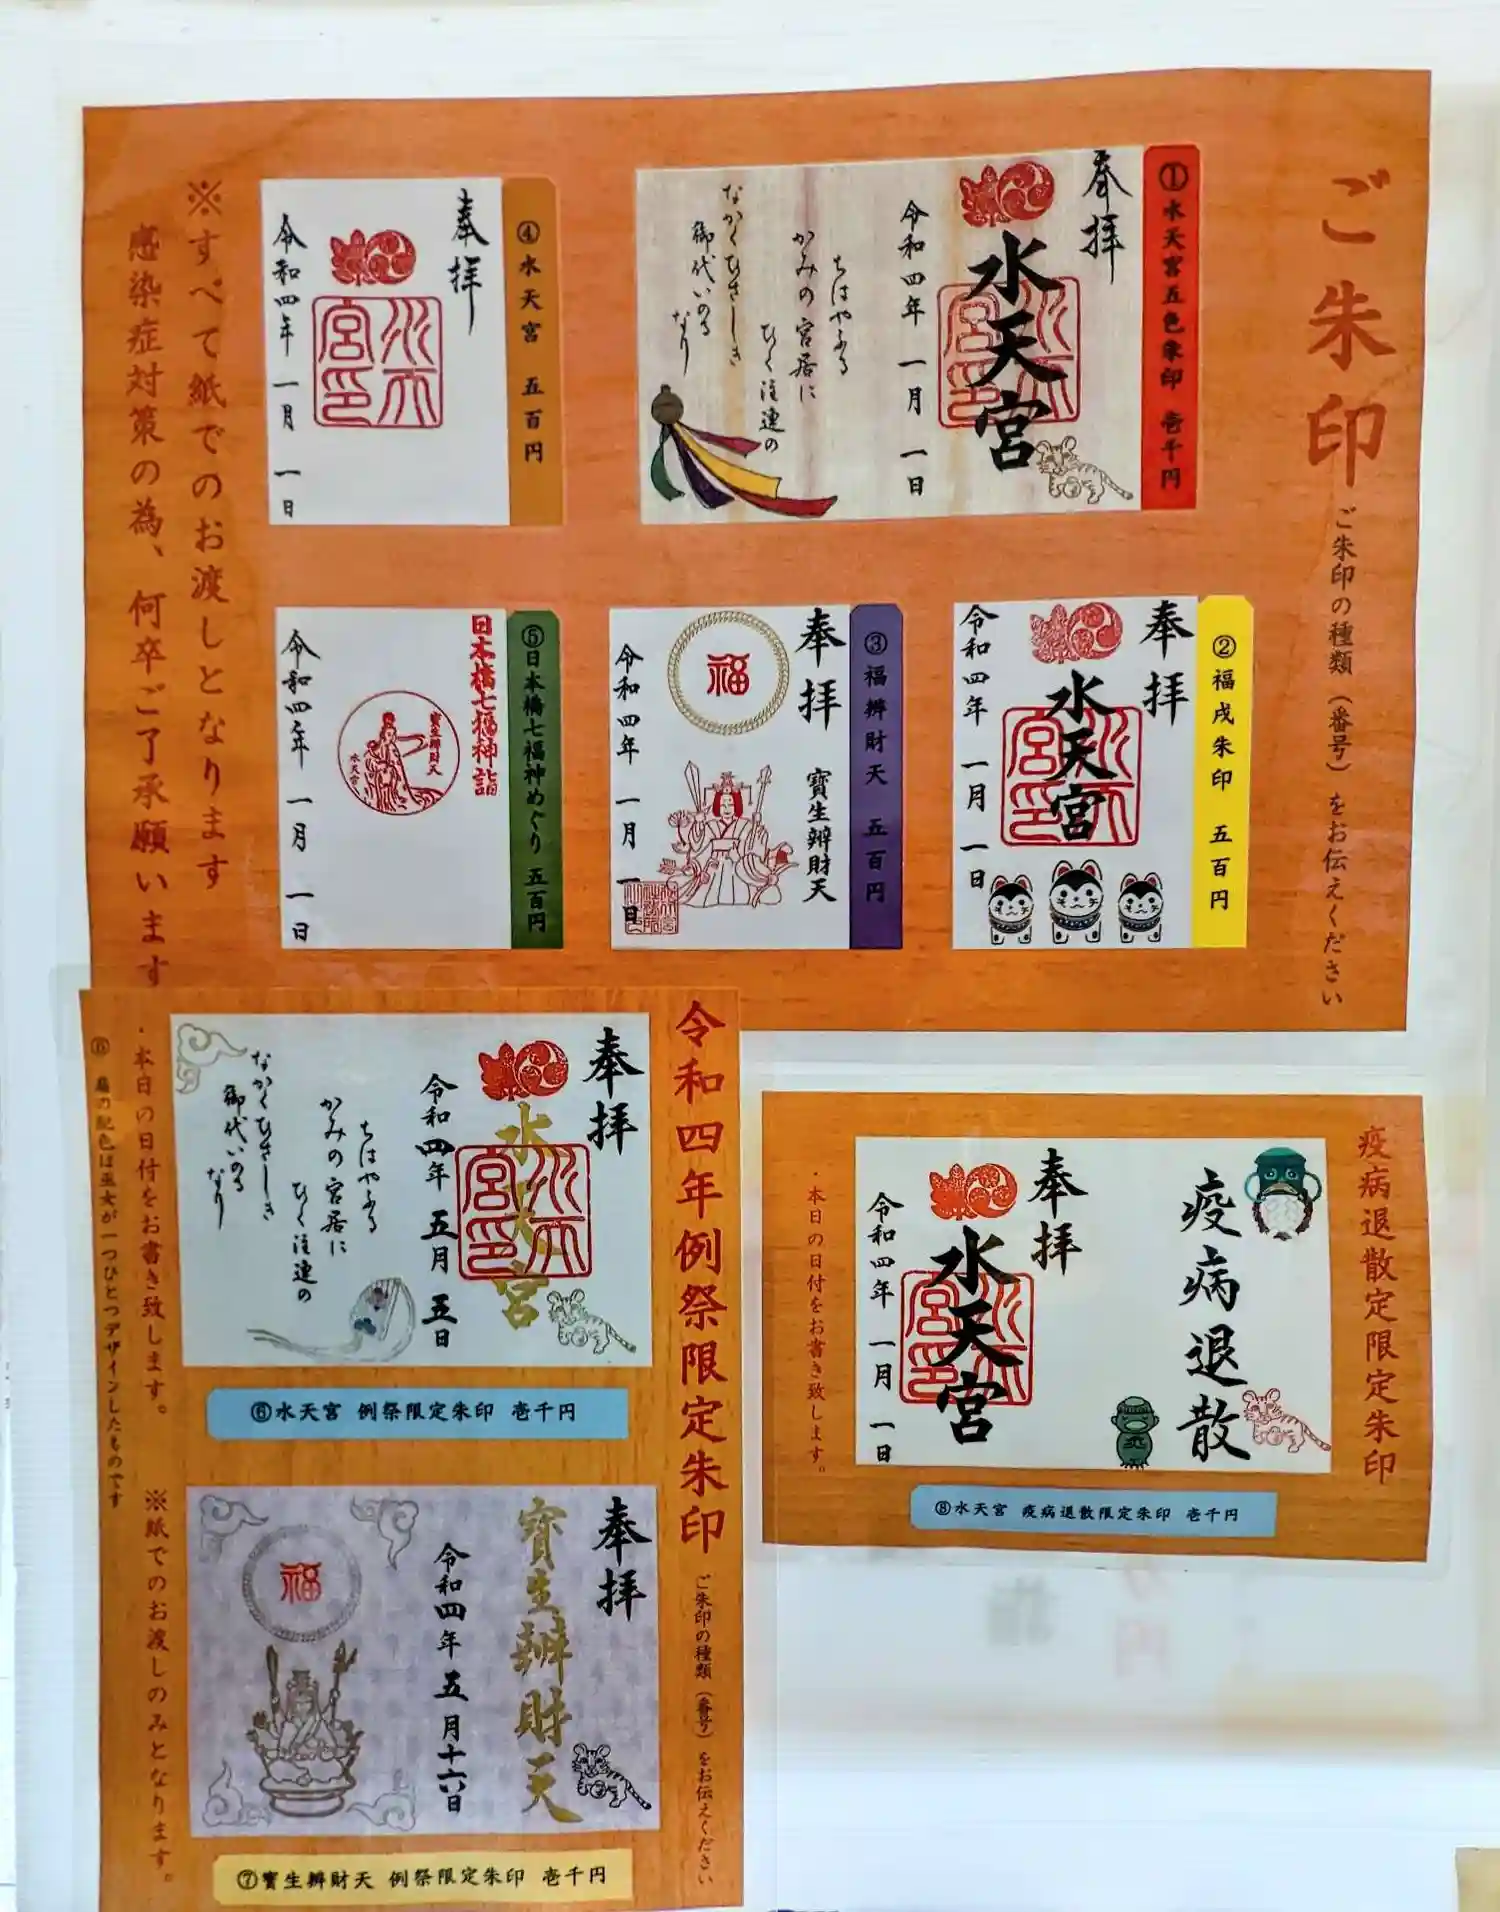 ご朱印
ご朱印の種類（番号）をお伝えください
①水天宮五色朱印 壱千円
奉拝
水天宮
令和四年 一月 一日
ちはやふる
かみの宮居に
ひく注連の
なかくひさしき
御代いのる
なり
④水天宮 五百円
奉拝
令和四年 一月 一日
②福戌朱印 五百円
奉拝
水天宮
令和四年 一月 一日
③福辨財天 五百円
奉拝
寶生辨財天
福
令和四年 一月 一日
⑤日本橋七福神めぐり 五百円
日本橋七福神詣
寶生辨財天
水天宮
令和四年 一月 一日
※すべて紙でのお渡しとなります
感染症対策の為、何卒ご了承願います
令和四年例祭限定朱印
ご朱印の種類（番号）をお伝えください
奉拝
水天宮
令和四年 五月 五日
ちはやふる
かみの宮居に
ひく注連の
なかくひさしき
御代いのる
なり
⑥水天宮 例祭限定朱印 壱千円
奉拝
寶生辨財天
令和四年五月十六日
福
⑦寶生辨財天 例祭限定朱印 壱千円
・本日の日付をお書き致します。 ※紙でのお渡しのみとなります。
⑥ 扇の配色は巫女が一つひとつデザインしたものです
疫病退散定限定朱印
疫病退散
奉拝
水天宮
令和四年 一月 一日
・本日の日付をお書き致します。
⑧水天宮 疫病退散限定朱印 壱千円